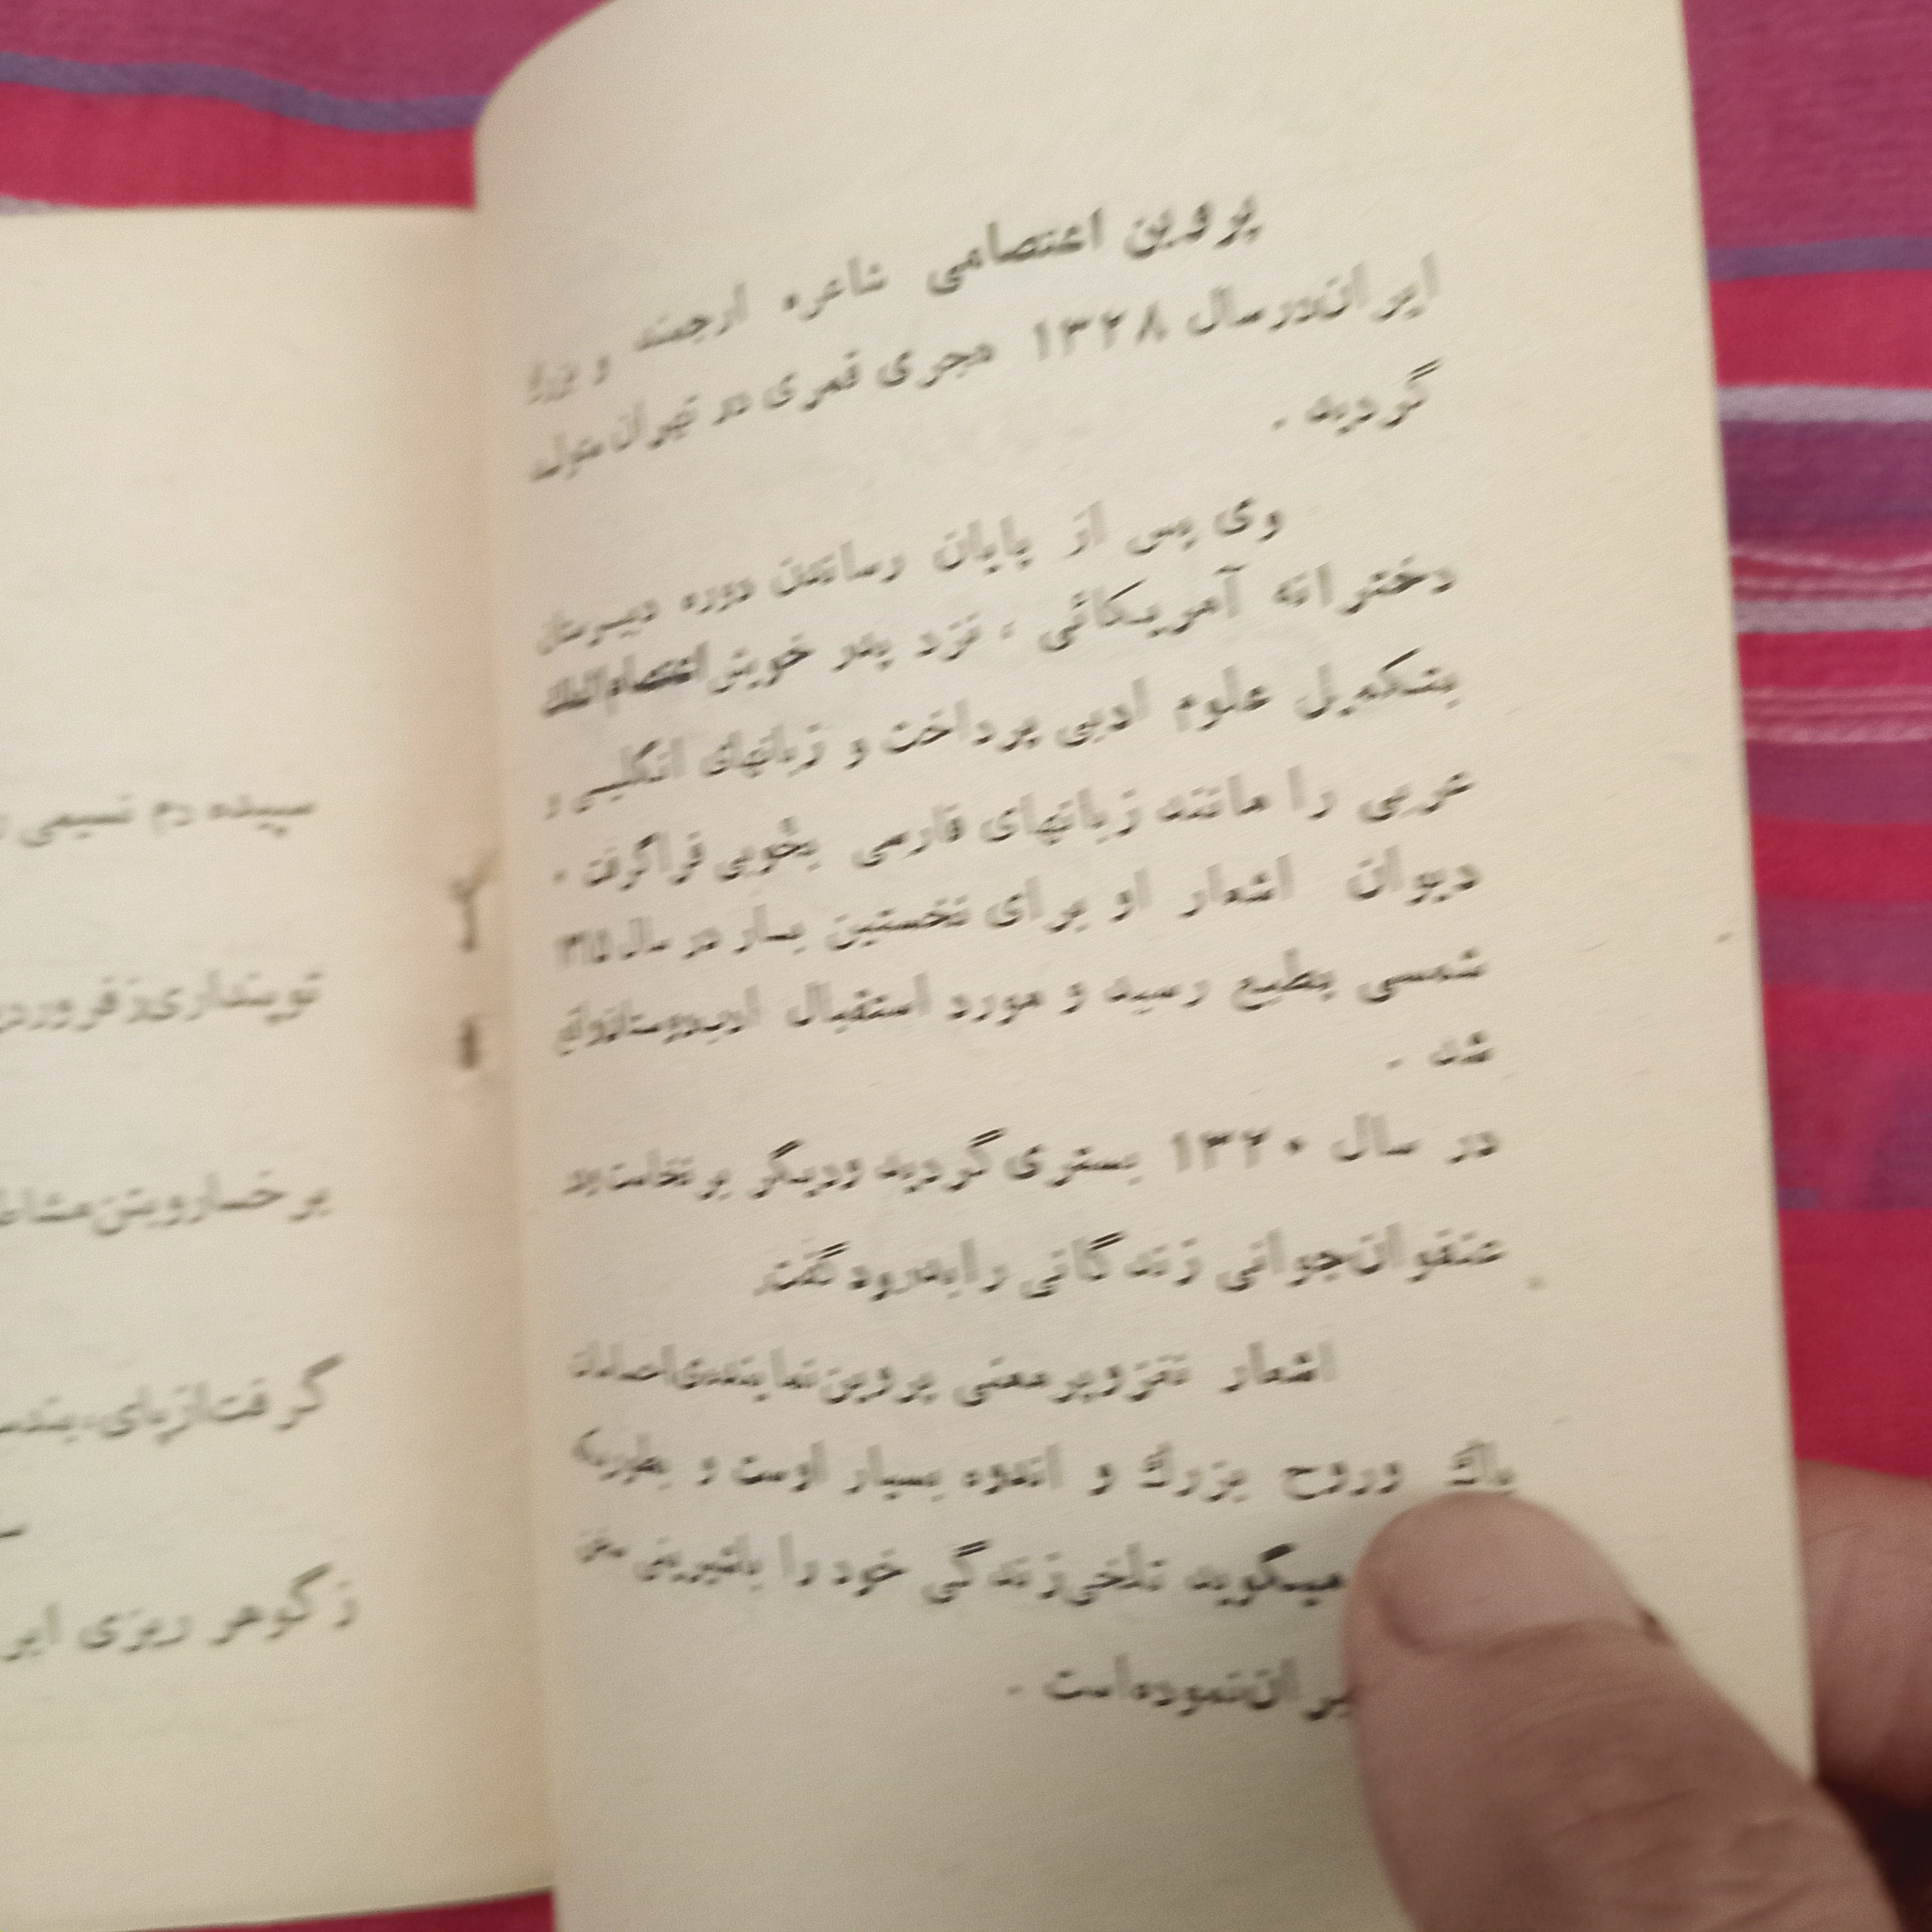 پروین اعتصامی شاعره ارجمند و بزرگ
ایران در سال ۱۳۲۸ هجری قمری در تهران متولد
گردید .
وی پس از پایان رساندن دوره دبیرستان
دخترانه آمریکائی ، نزد پدر خویش اعتصام‌الملك
بتکمیل علوم ادبی پرداخت و زبانهای انگلیسی و
عربی را مانند زبانهای فارسی بخوبی فراگرفت .
دیوان اشعار او برای نخستین بار در سال ۱۳۱۵
شمسی بطبع رسید و مورد استقبال ادب‌دوستان واقع
شد .
در سال ۱۳۲۰ بستری گردید و دیگر برنخاست و در
عنفوان جوانی زندگانی را بدرود گفت.
اشعار نغز و پر معنی پروین نماینده‌ی احساسات
پاك و روح بزرك و اندوه بسیار اوست و بطوریکه
میگوید تلخی زندگی خود را باشیرینی سخن
نموده است .
سپیده دم نسیمی
تو پنداری ز فروردین
بر خسار و بتن مشاطه
گرفت از پای، بند
ز گوهر ریزی ابر